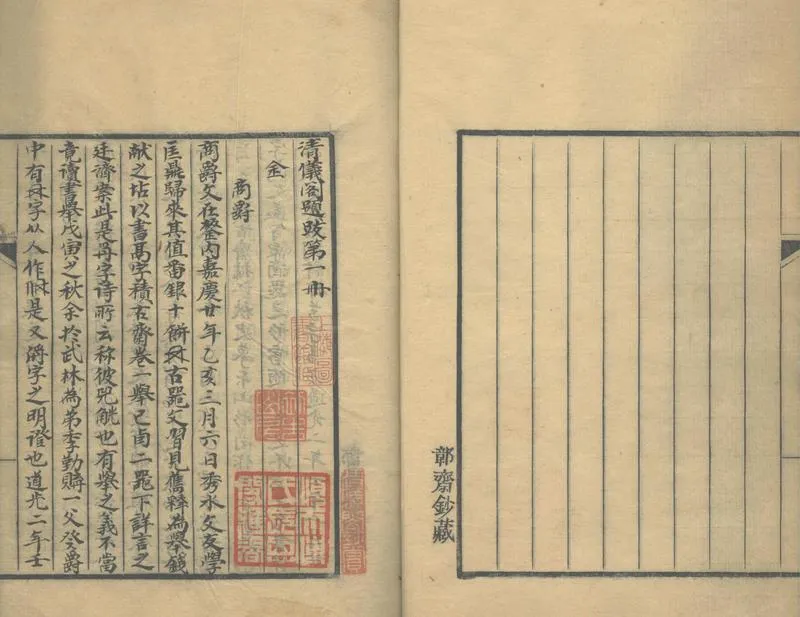 鄣齋鈔藏
清儀閣題跋第一冊
金
商爵
商爵文在鋬內嘉慶廿年乙亥三月六日秀水文友學
匡鼎歸來其值番銀十餅古器文習見舊釋為舉錢
獻之坫以書字積古齋卷一舉己卣二器下詳言之
廷濟案此是字詩所云称彼兕觥也有舉之義不當
竟讀書舉戊寅之秋余於武林為弟季勤購一父癸爵
中有字从人作是又字之明證也道光二年壬